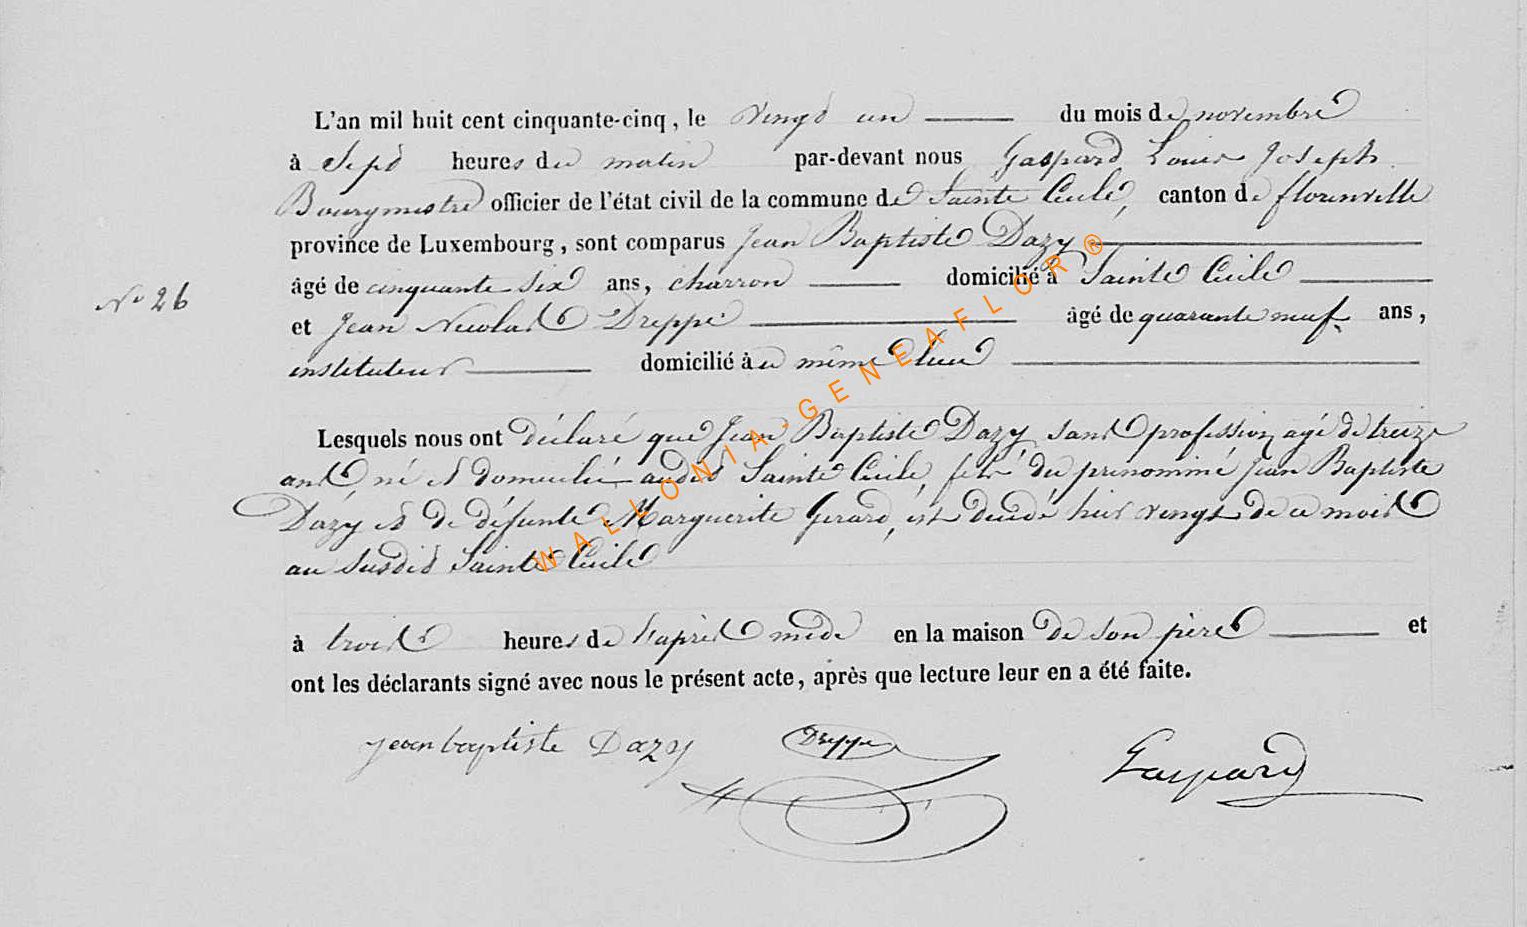 L'an mil huit cent cinquante-cinq, le vingt un du mois de novembre
à sept heures du matin par-devant nous Gaspard Louis Joseph
Bourgmestre officier de l'état civil de la commune de Sainte Cécile, canton de florenville
province de Luxembourg, sont comparus Jean Baptiste Dazy
âgé de cinquante six ans, charron domicilié à Sainte Cécile
N° 26
et Jean Nicolas Dreppe âgé de quarante neuf ans,
instituteur domicilié à ce même lieu
Lesquels nous ont déclaré que Jean Baptiste Dazy sans profession agé de treize
ans, né et domicilié audit Sainte Cécile, fils du prénommé Jean Baptiste
Dazy et de défunte Marguerite Gerard, est décédé hier vingt de ce mois
au susdit Sainte Cécile
à trois heures de l'après midi en la maison de son père et
ont les déclarants signé avec nous le présent acte, après que lecture leur en a été faite.
jean baptiste Dazy Dreppe Gaspard
WALLONIA-GENEAFLOR®